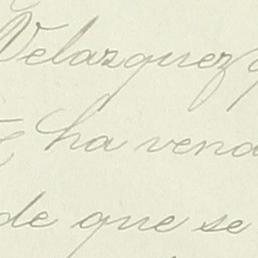 Velazquez
ha vend
de que se